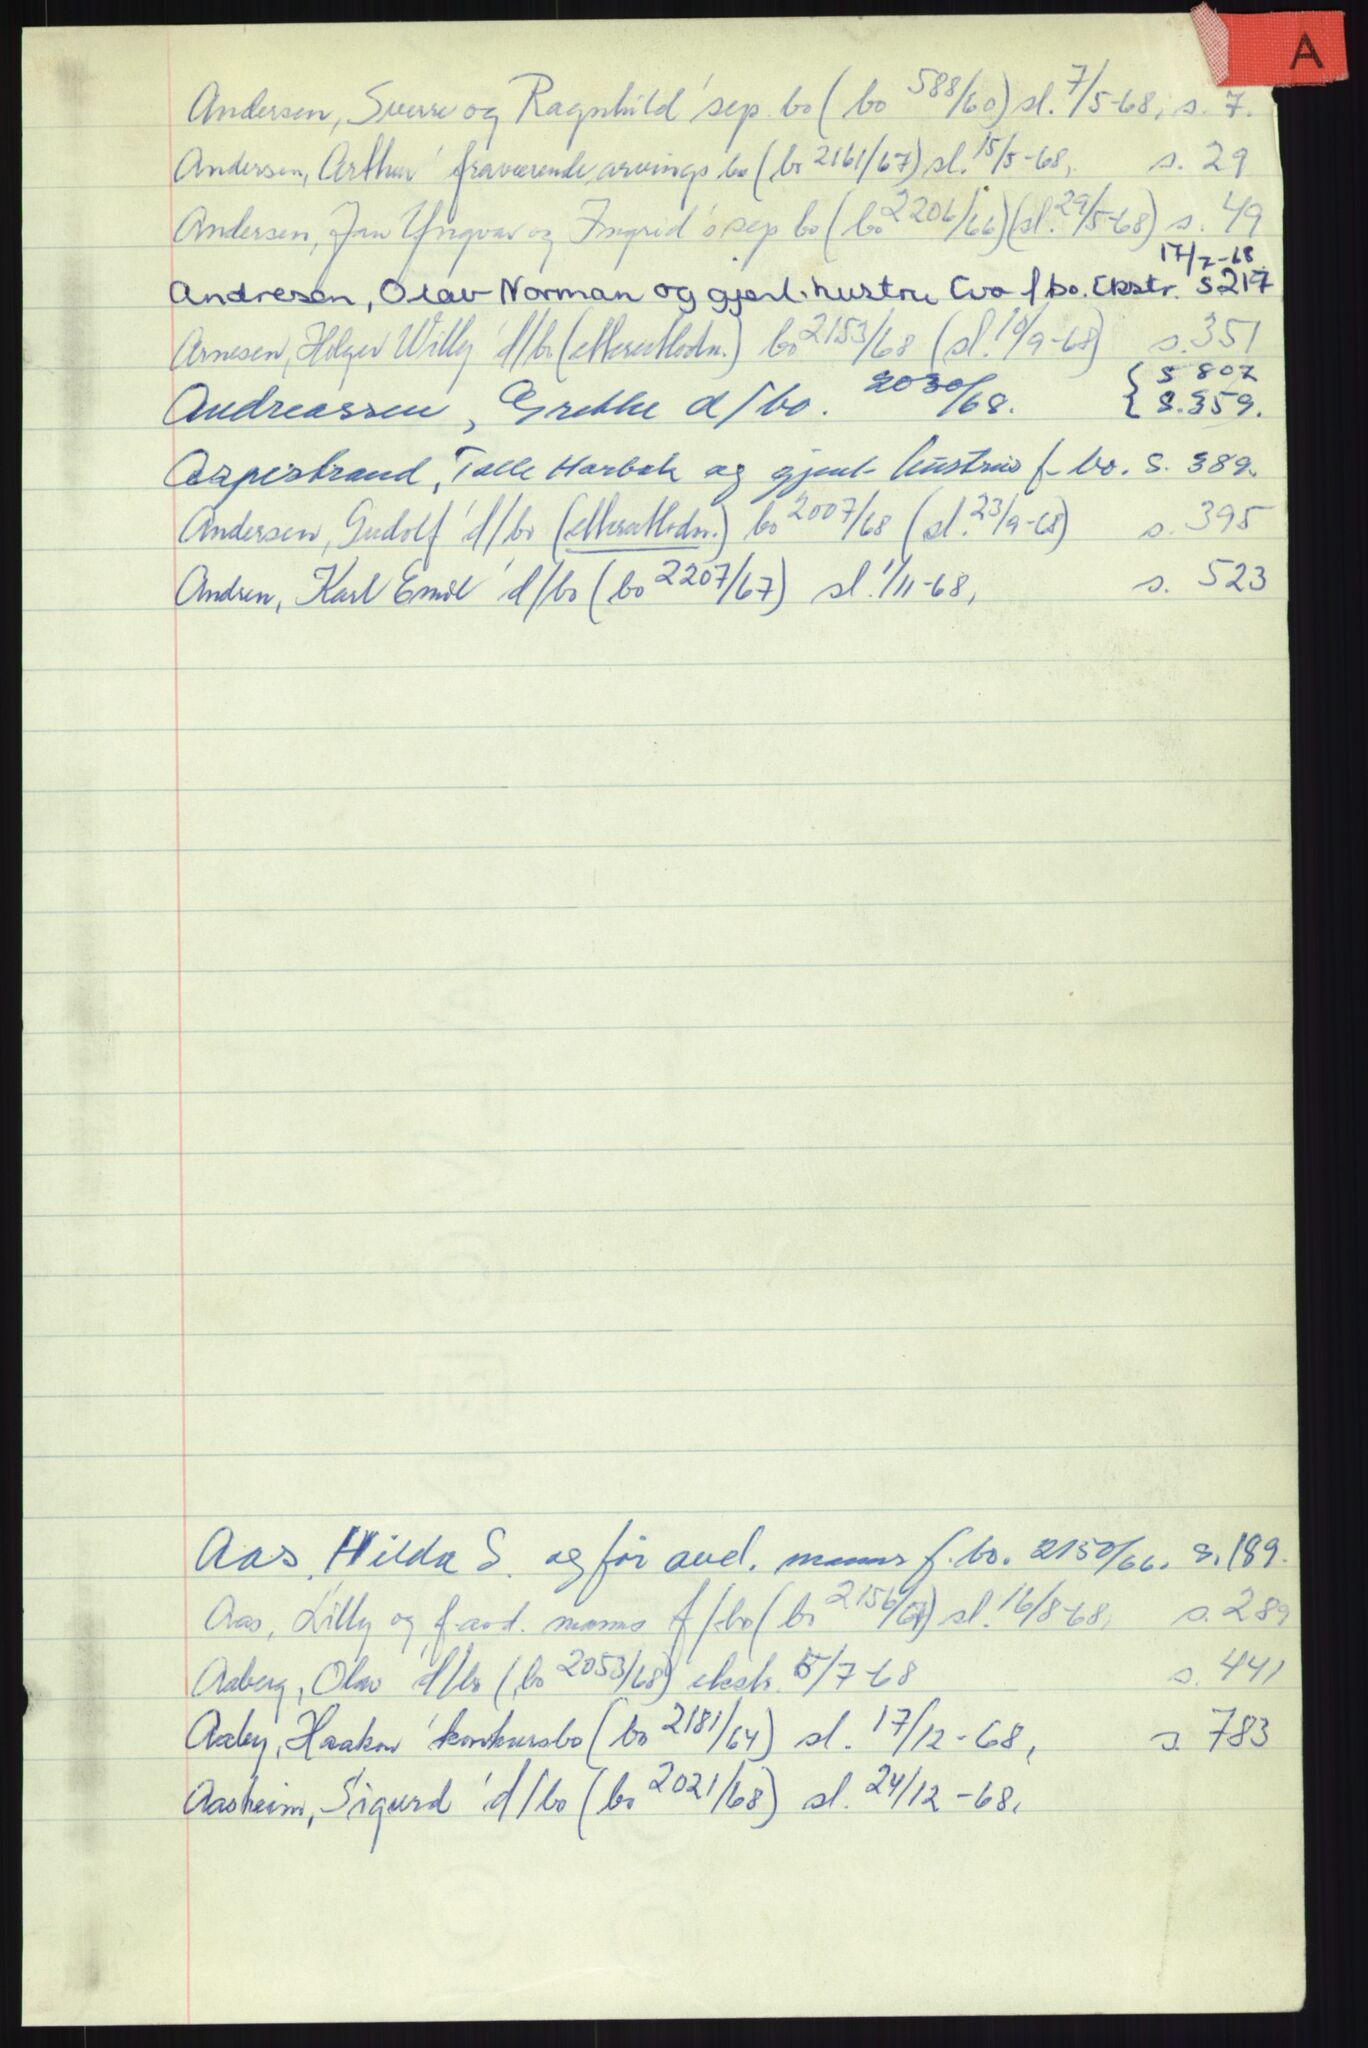 A
Andersen, Sverre og Ragnhild's sep. bo (bo 588/60) sl. 7/5-68, s. 7.
Andersen, Arthur' fraværende arvings bo (bo 2161/67) sl. 15/5-68, s. 29
Andersen, Jan Yngvar og Ingrid's sep bo (bo 2206/66) (sl. 29/5-68) s. 49
17/7-68
Andresen, Olav Norman og gjenl. hustru Eva f/bo. Ekstr. s 217
Arnesen, Holger Willy' d/bo (etterutlodn.) bo 2153/68 (sl. 10/9-68) s. 351
{ s 807
Andreassen, Grethe d/bo. 2030/68. { s. 359.
Aspestrand, Tolle Harbak og gjenl. hustrus f. bo. s. 389.
Andersen, Gudolf' d/bo (etterutlodn.) bo 2007/68 (sl. 23/9-68) s. 395
Andsen, Karl Emil' d/bo (bo 2207/67) sl. 1/11-68, s. 523
Aas, Hilda S. og før avd. manns f. bo. 2150/66. s. 189.
Aas, Lilly og f. avd. manns f/bo (bo 2156/67) sl. 16/8-68, s. 289
Aaberg, Olav' d/bo (bo 2053/68) ekstr. 5/7-68 s. 441
Aaby, Haakon' konkursbo (bo 2181/64) sl. 17/12-68, s. 783
Aasheim, Sigurd' d/bo (bo 2021/68) sl. 24/12-68,